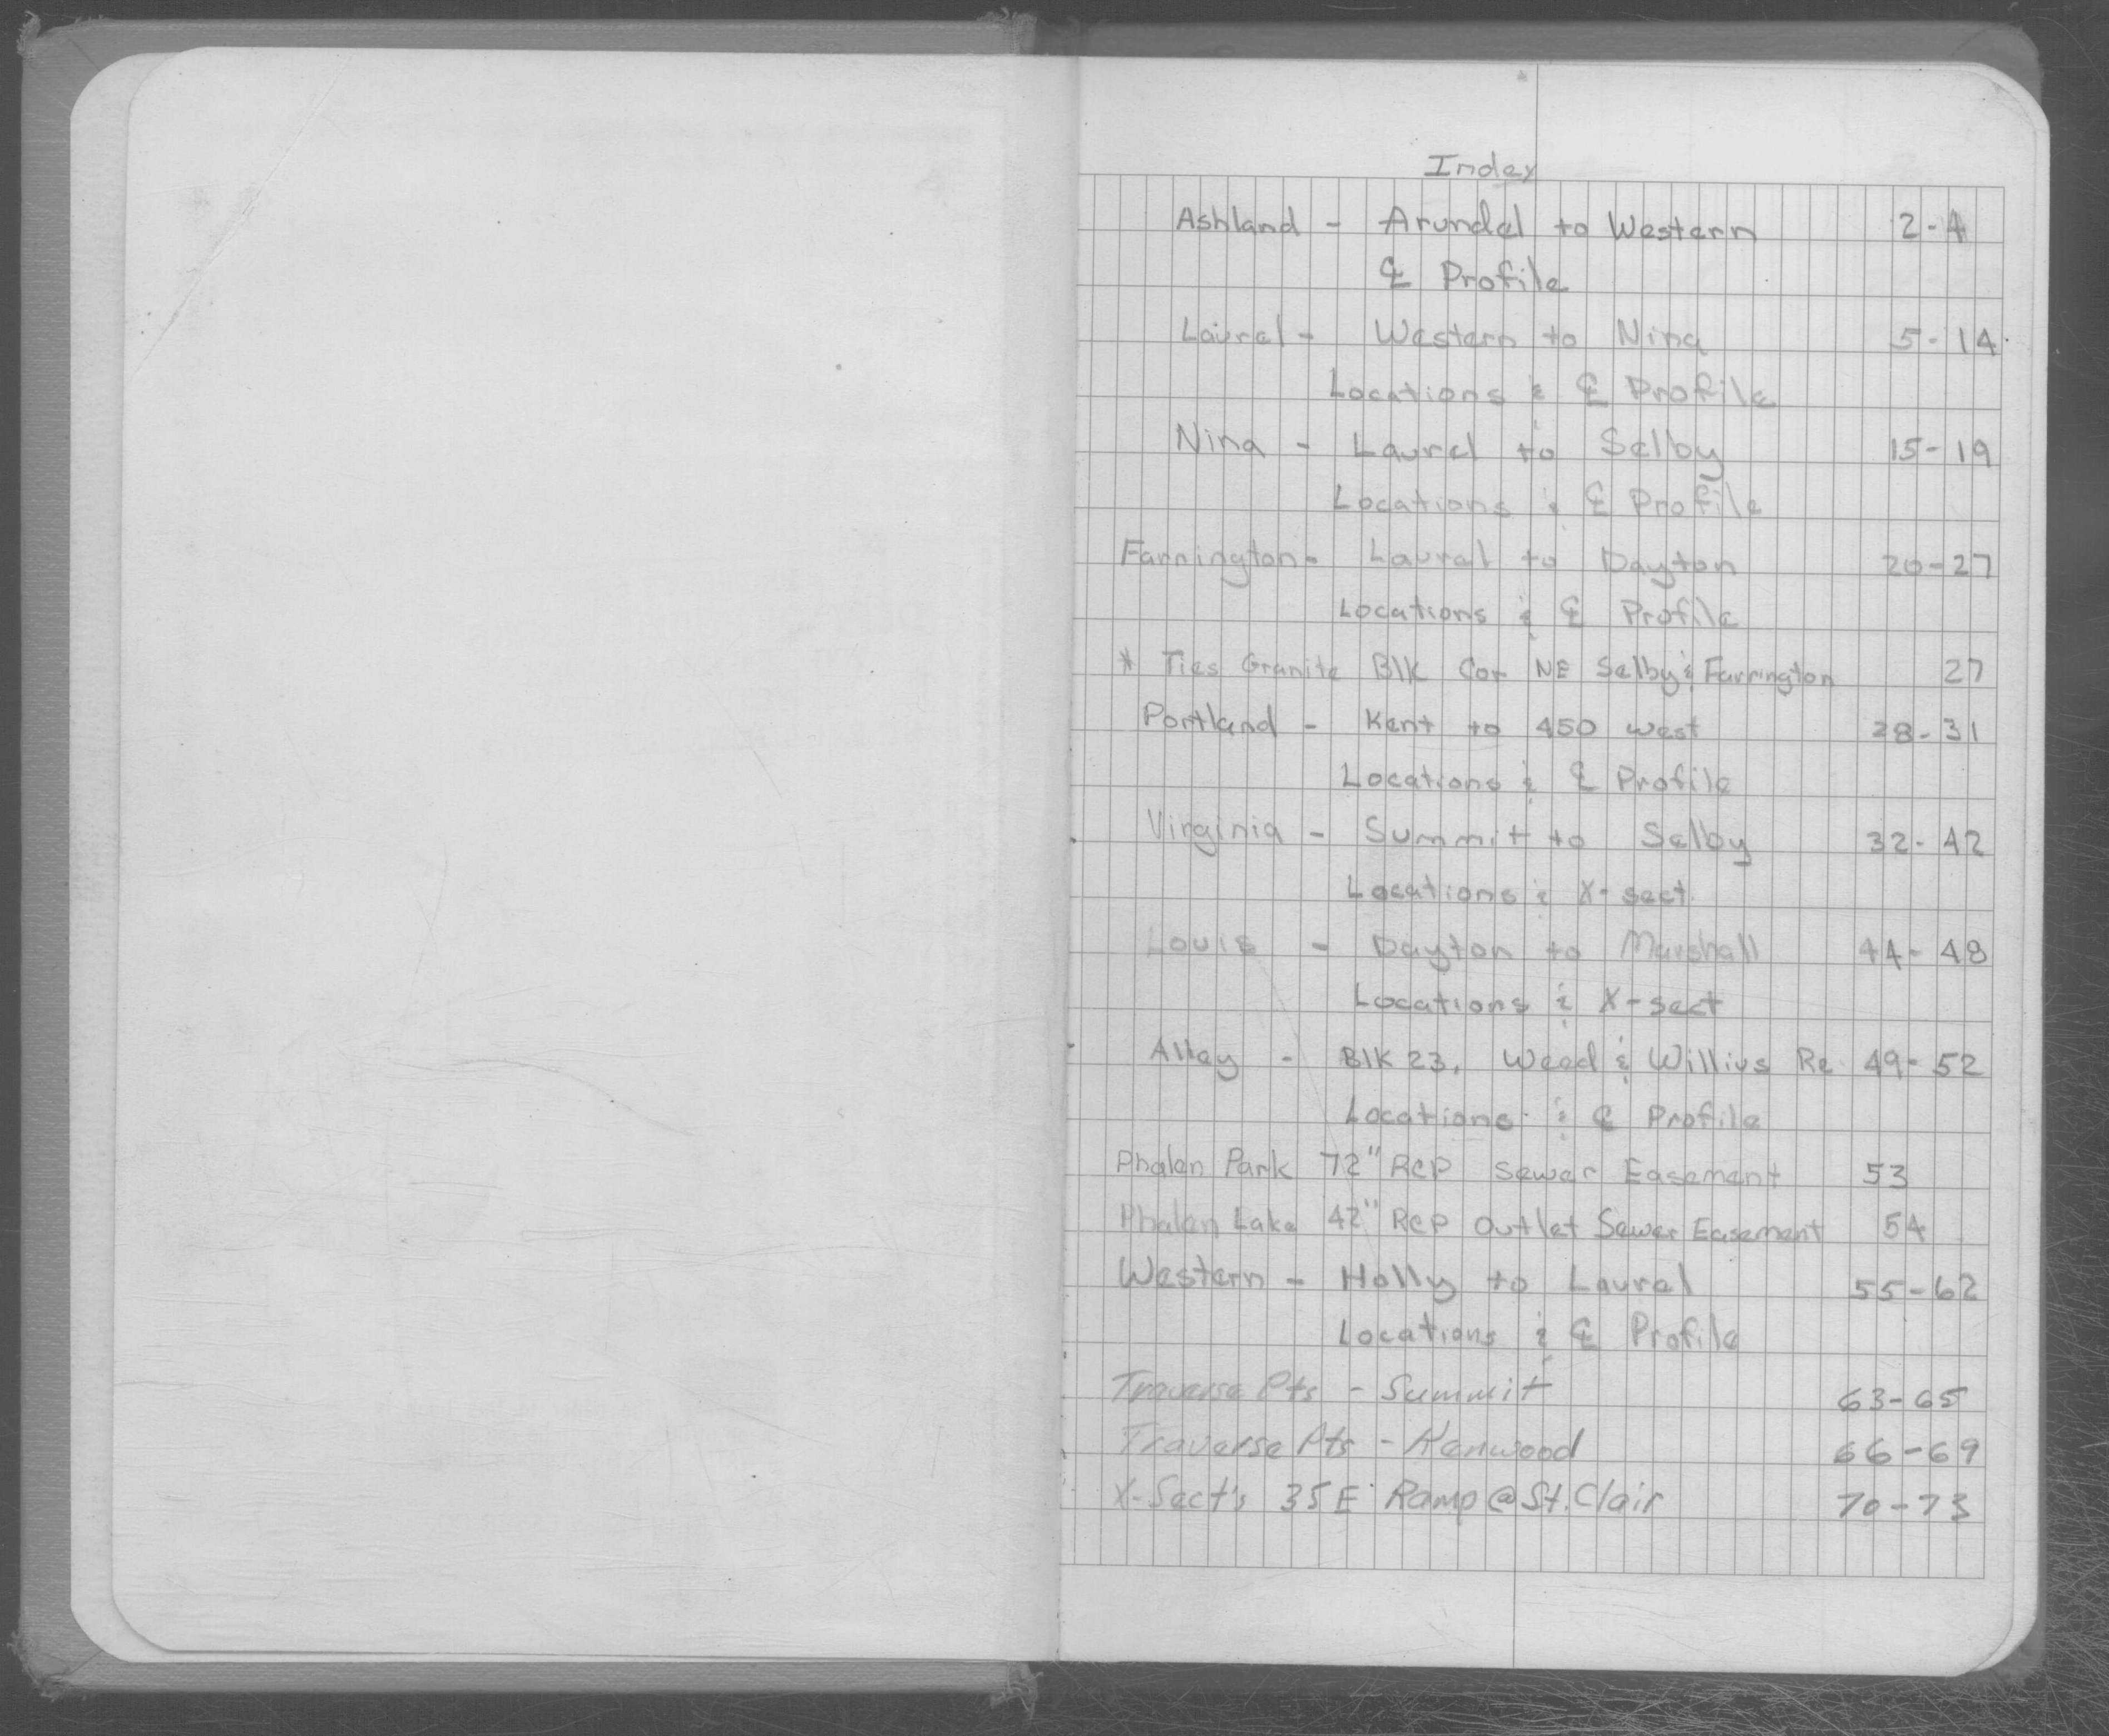 Index
Ashland - Arundel to Western 2-4
℄ Profile
Laurel - Western to Nina 5-14
Locations & ℄ Profile
Nina - Laurel to Selby 15-19
Locations & ℄ Profile
Farrington - Laural to Dayton 20-27
Locations & ℄ Profile
* Ties Granite Blk Cor NE Selby & Farrington 27
Portland - Kent to 450 west 28-31
Locations & ℄ Profile
Virginia - Summit to Selby 32-42
Locations & X-sect.
Louis - Dayton to Marshall 44-48
Locations & X-sect
Alley - Blk 23, Weed & Willius Re 49-52
Locations & ℄ Profile
Phalen Park 72" RCP Sewer Easement 53
Phalen Lake 42" RCP Outlet Sewer Easement 54
Western - Holly to Laurel 55-62
Locations & ℄ Profile
Traverse Pts - Summit 63-65
Traverse Pts - Kenwood 66-69
X-Sect's 35E Ramp @ St. Clair 70-73